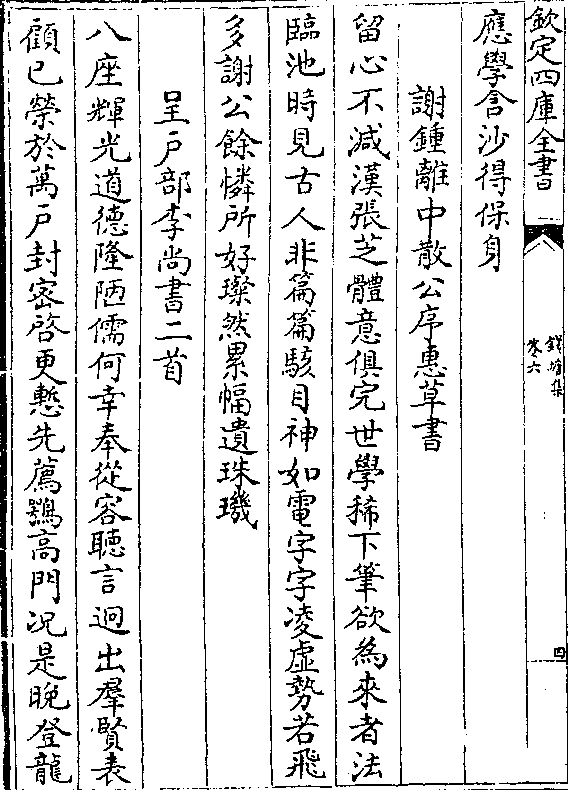 欽定四庫全書
應學含沙得保身
謝鍾離中散公序惠草書
留心不減漢張芝體意俱完世學稀下筆欲為來者法
臨池時見古人非篇篇駭目神如電字字凌虛勢若飛
多謝公餘憐所好璨然累幅遺珠璣
呈户部李尚書二首
八座輝光道德隆陋儒何幸奉從容聽言迥出羣賢表
顧已榮於萬户封密啓更慙先薦鶚高門况是晚登龍
卷六
四